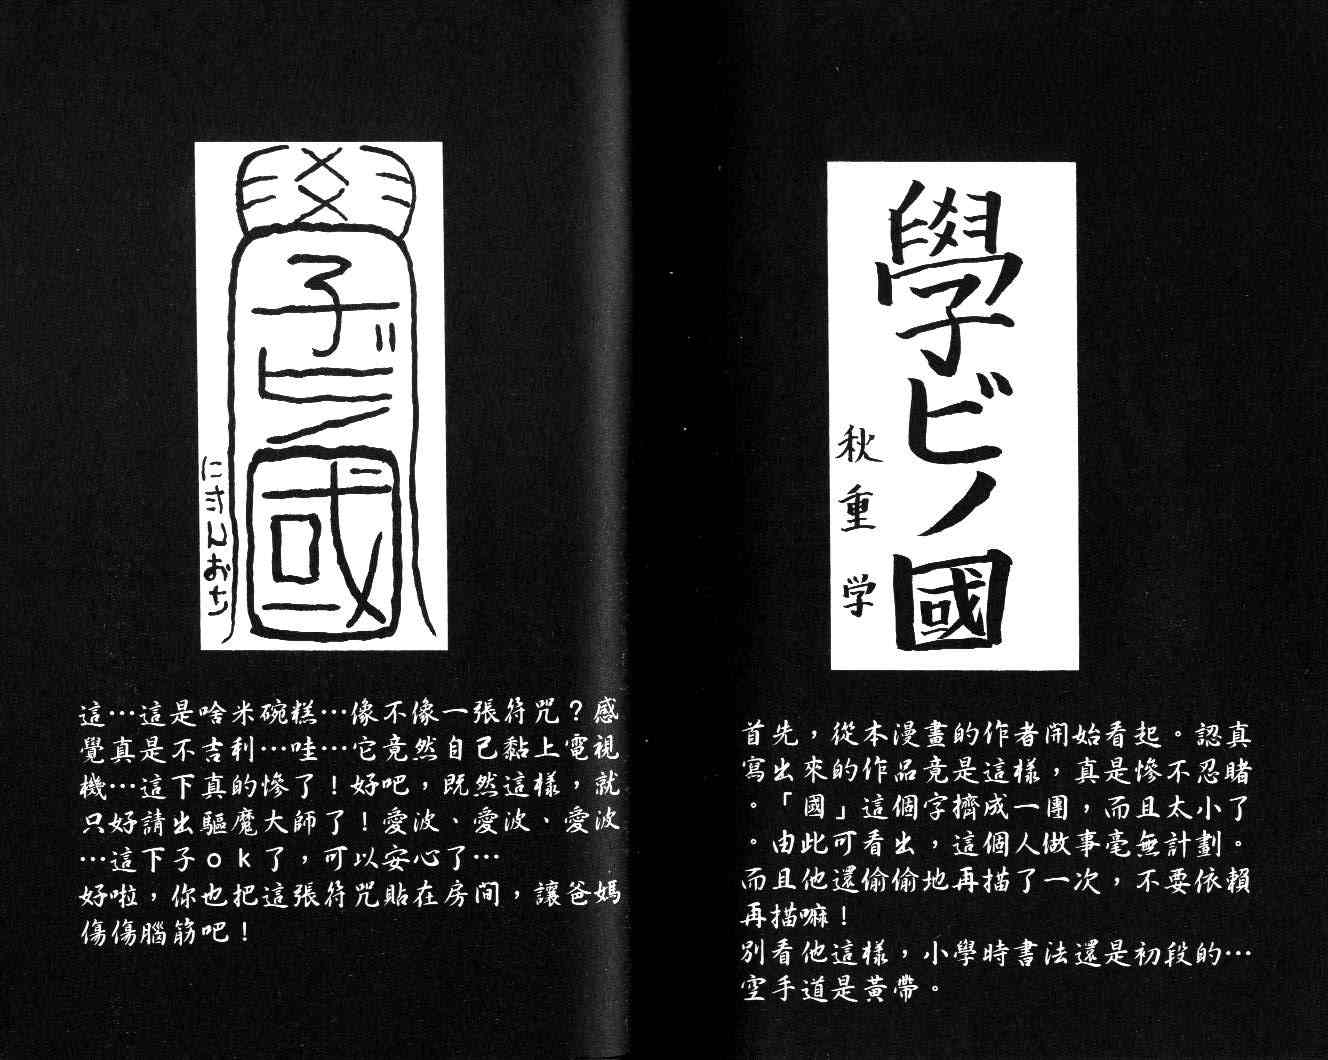 學ビノ國
秋重学
首先，從本漫畫的作者開始看起。認真
寫出來的作品竟是這樣，真是慘不忍睹
。「國」這個字擠成一團，而且太小了
。由此可看出，這個人做事毫無計劃。
而且他還偷偷地再描了一次，不要依賴
再描嘛！
別看他這樣，小學時書法還是初段的…
空手道是黃帶。
學ビノ國
にさんおち
這…這是啥米碗糕…像不像一張符咒？感
覺真是不吉利…哇…它竟然自己黏上電視
機…這下真的慘了！好吧，既然這樣，就
只好請出驅魔大師了！愛波、愛波、愛波
…這下子ｏｋ了，可以安心了…
好啦，你也把這張符咒貼在房間，讓爸媽
傷傷腦筋吧！